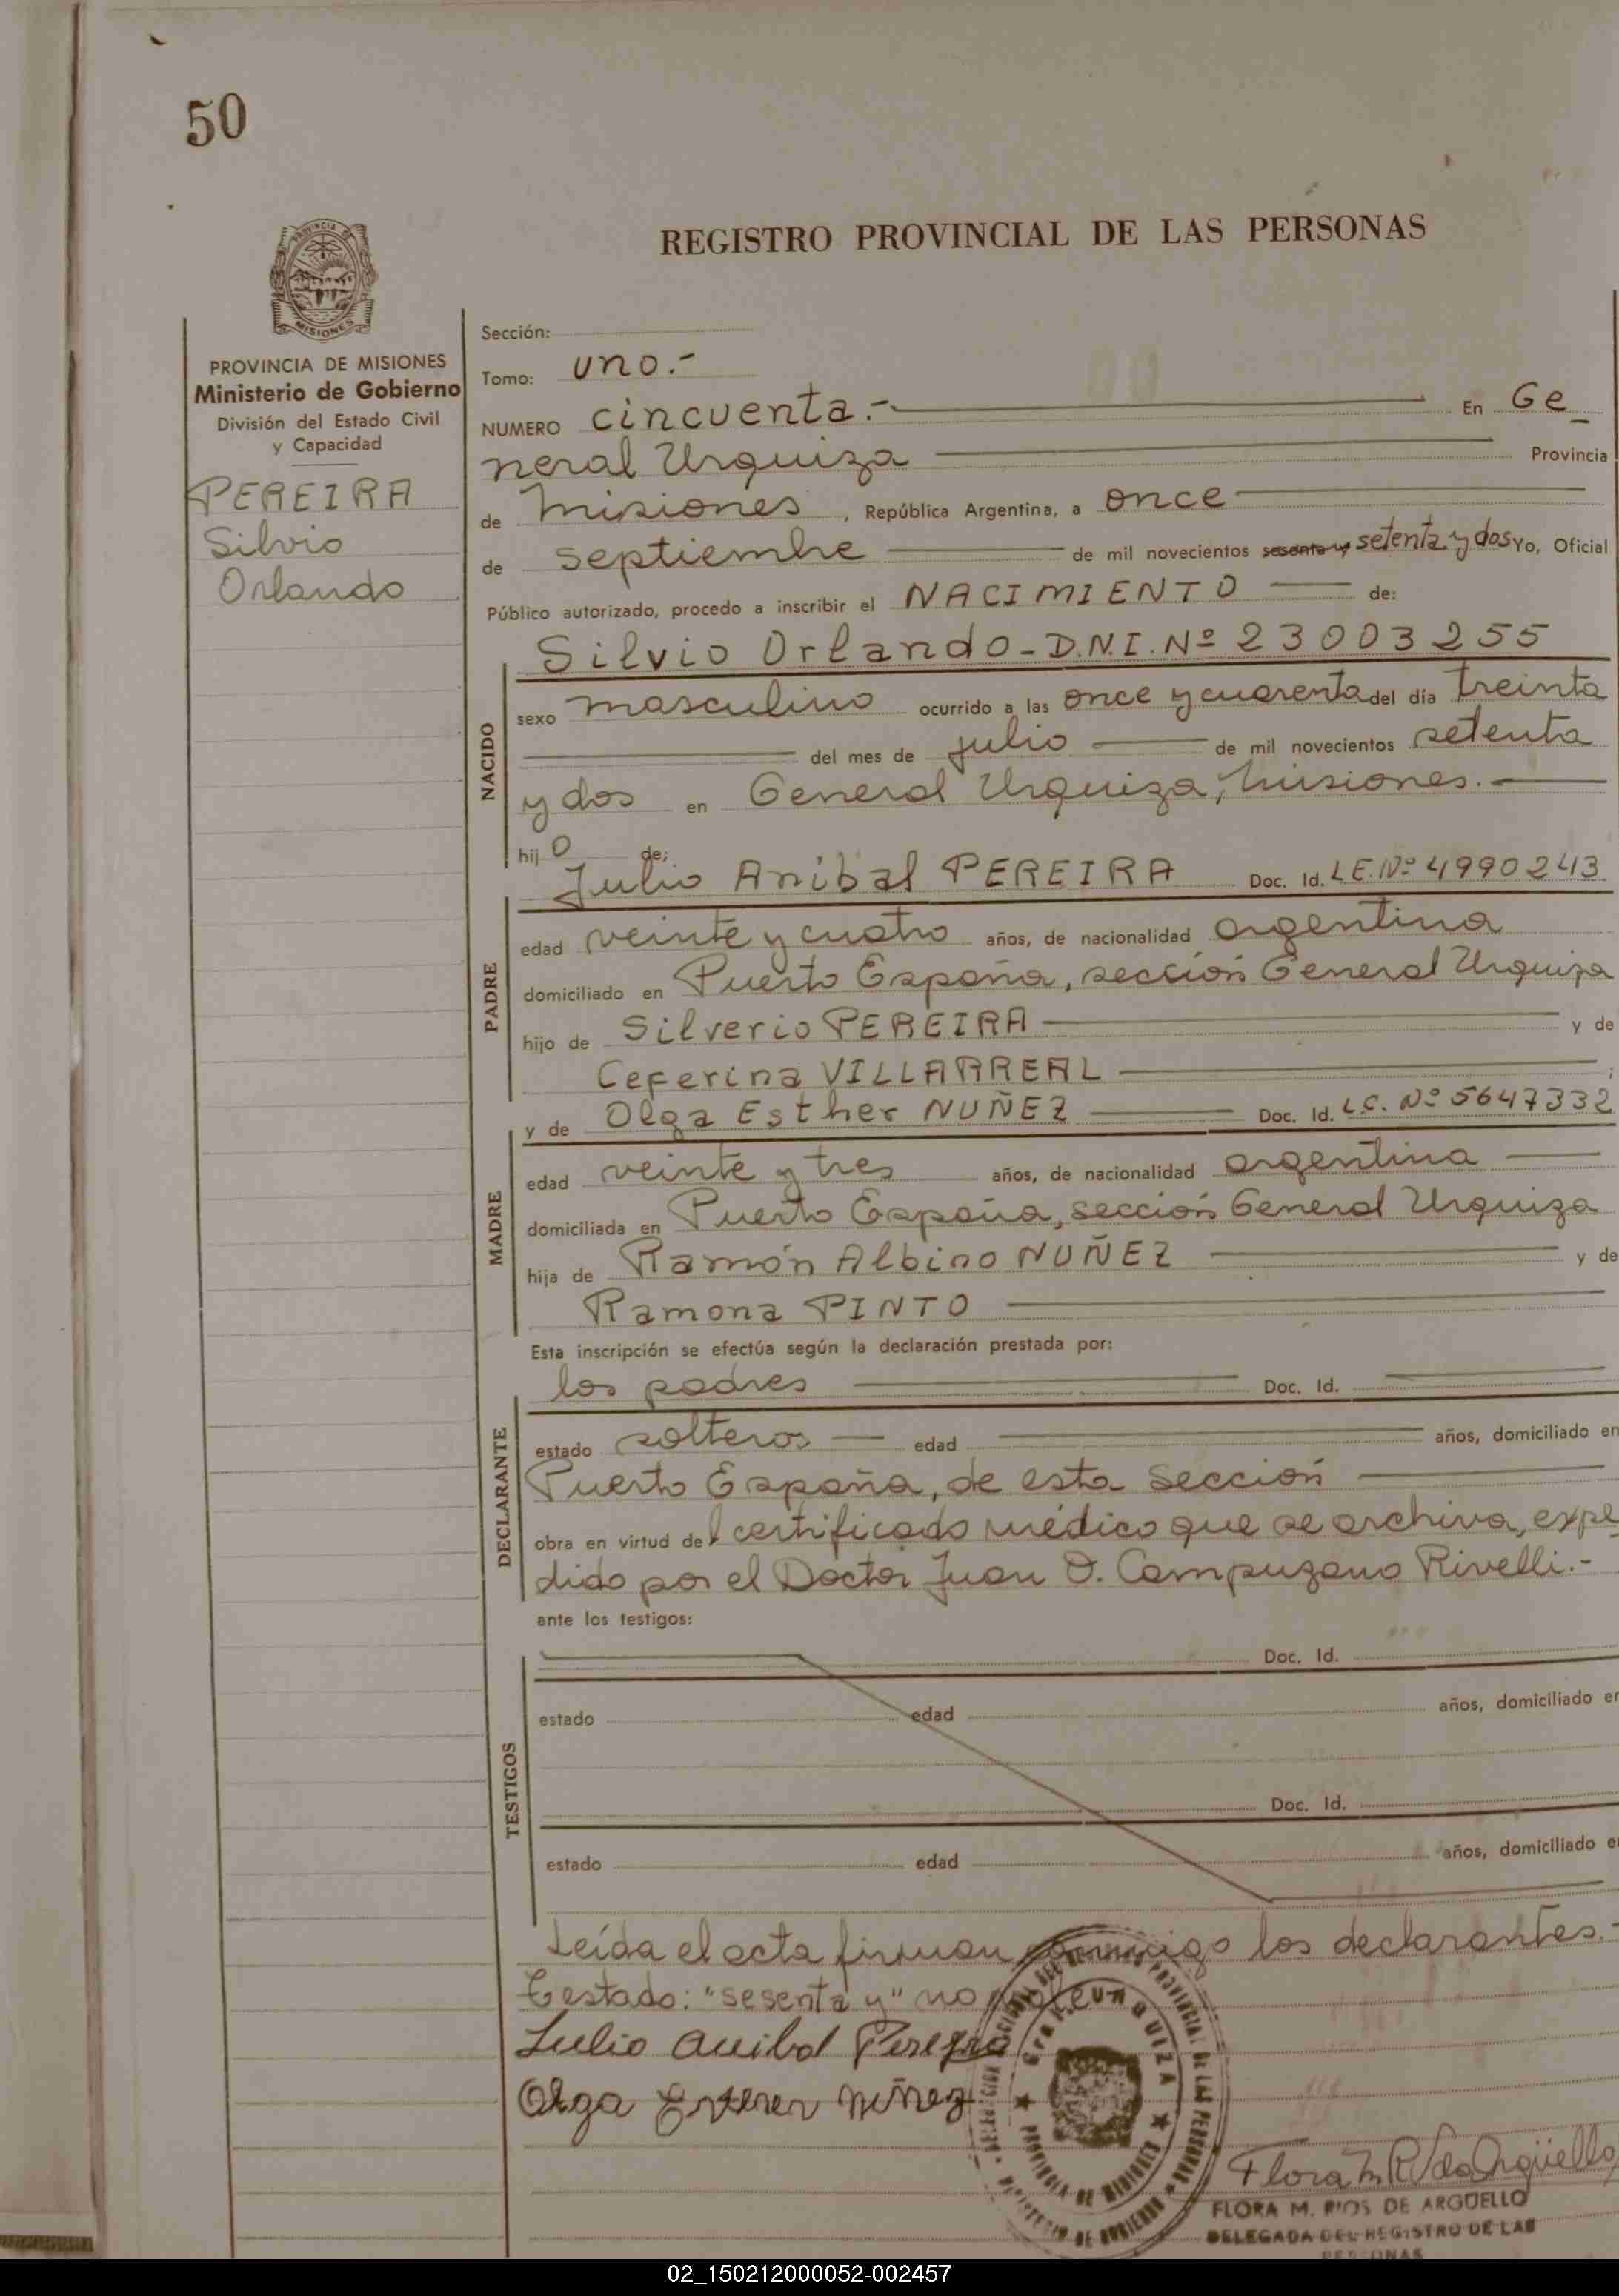 50
REGISTRO PROVINCIAL DE LAS PERSONAS
PROVINCIA DE MISIONES
Ministerio de Gobierno
División del Estado Civil
y Capacidad
PEREIRA
Silvio
Orlando
Sección:
Tomo: uno.-
NUMERO cincuenta.- En Ge_
neral Urquiza Provincia
de Misiones, República Argentina, a once
de septiembre de mil novecientos sesenta y setenta y dos Yo, Oficial
Público autorizado, procedo a inscribir el NACIMIENTO de:
Silvio Orlando - D.N.I. Nº 23003255
NACIDO
sexo masculino ocurrido a las once y cuarenta del día treinta
del mes de julio de mil novecientos setenta
y dos en General Urquiza, Misiones.-
hij o de:
Julio Anibal PEREIRA Doc. Id. L.E. Nº 4990243
PADRE
edad veinte y cuatro años, de nacionalidad argentina
domiciliado en Puerto España, sección General Urquiza
hijo de Silverio PEREIRA y de
Ceferina VILLARREAL ;
y de Olga Esther NUÑEZ Doc. Id. L.C. Nº 5647332
MADRE
edad veinte y tres años, de nacionalidad argentina
domiciliada en Puerto España, sección General Urquiza
hija de Ramón Albino NUÑEZ y de
Ramona PINTO
Esta inscripción se efectúa según la declaración prestada por:
los padres Doc. Id.
DECLARANTE
estado solteros edad años, domiciliado en
Puerto España, de esta Sección
obra en virtud del certificado médico que se archiva, expe
dido por el Doctor Juan O. Campuzano Rivelli.-
ante los testigos:
Doc. Id.
TESTIGOS
estado edad años, domiciliado en
Doc. Id.
estado edad años, domiciliado en
Leída el acta firman conmigo los declarantes.-
Testado: "sesenta y" no vale
Julio Anibal Pereira
Olga Esther Nuñez
PROVINCIA DE MISIONES
Flora M. R. de Argüello
FLORA M. RIOS DE ARGÜELLO
DELEGADA DEL REGISTRO DE LAS
PERSONAS
02_150212000052-002457